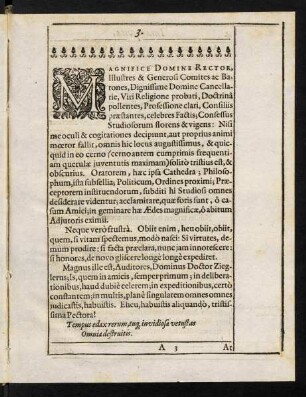 3.
MAGNIFICE DOMINE RECTOR,
Illustres & Generosi Comites ac Ba-
rones, Dignissime Domine Cancella-
rie, Viri Religione probati, Doctrinâ
pollentes, Professione clari, Consiliis
præstantes, celebres Factis; Consessus
Studiosorum florens & vigens: Nisi
me oculi & cogitationes decipiunt, aut proprius animi
mœror fallit, omnis hic locus augustissimus, & quic-
quid in eo cerno (cerno autem cumprimis frequenti-
am quetulæ juventutis maximam) solitò tristius est, &
obscurius. Oratorem, hæc ipsa Cathedra; Philoso-
phum, ista subsellia; Politicum, Ordines proximi; Præ-
ceptorem instituendorum, subsidii hi Studiosi omnes
desiderare videntur; acclamitare, quæ foris sunt, ô ca-
sum Amici; in geminare hæ Ædes magnificæ, ô abitum
Adjuroris eximii.
Neque verò frustrà. Obiit enim, heu obiit, obiit,
quem, si vitam spectemus, modò nasci: Si virtutes, de-
mum prodire; si facta præclara, nunc jam innotescere;
si honores, de novo gliscere longè longè expediret.
Magnus ille est, Auditores, Dominus Doctor Zieg-
lerus; Is, quem in amicis, semper primum; in delibera-
tionibus, haud dubiè celerem; in expeditionibus, certò
constantem; in multis, planè singularem omnes omnino
judicastis, habuistis. Eheu, habuistis aliquandò, tristis-
sima Pectora!
Tempus edax rerum, tuq; invidiosa vetustas
Omnia destruitis.
A 3 At